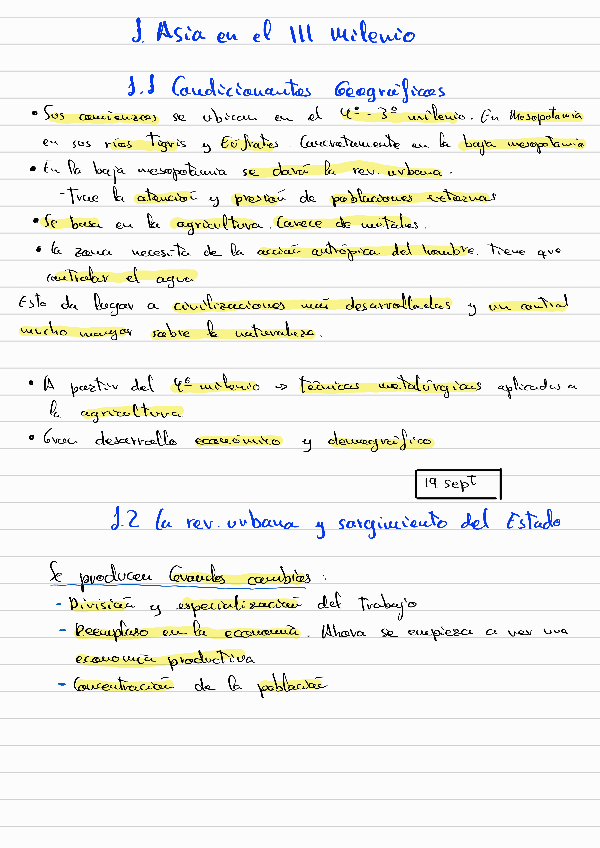 1. Asia en el III milenio
1.1 Condicionantes Geográficos
• Sus comienzos se ubican en el 4º-3º milenio. En Mesopotamia
en sus ríos Tigris y Eúfrates. Concretamente en la baja mesopotamia
• En la baja mesopotamia se dará la rev. urbana.
- Trae la atención y presión de poblaciones externas
• Se basa en la agricultura. Carece de metales.
• La zona necesita de la acción antrópica del hombre. Tiene que
controlar el agua
Esto da lugar a civilizaciones más desarrolladas y un control
mucho mayor sobre la naturaleza.
• A partir del 4º milenio → técnicas metalúrgicas aplicadas a
la agricultura
• Gran desarrollo económico y demográfico
19 sept
1.2 La rev. urbana y surgimiento del Estado
Se producen Grandes cambios:
- División y especialización del trabajo
- Reemplazo en la economía. Ahora se empieza a ver una
economía productiva
- Concentración de la población